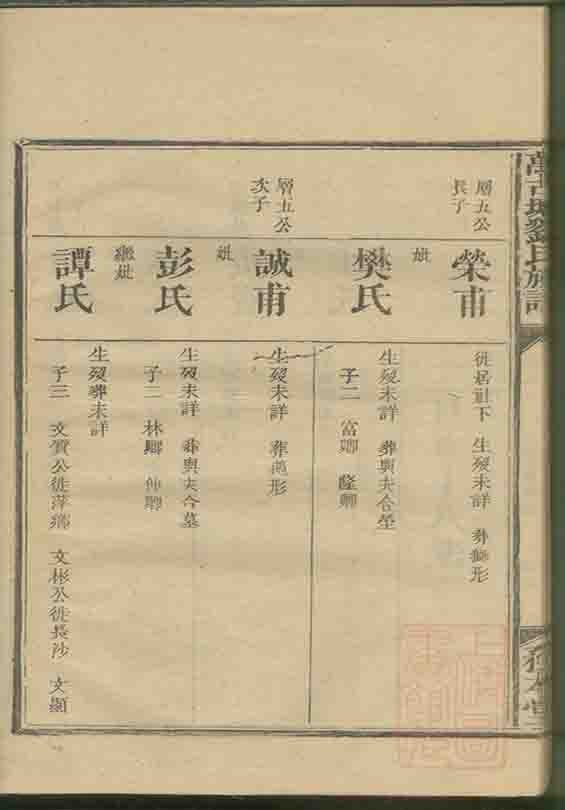 劉氏族譜
層五公
長子
榮甫
徙居社下 生歿未詳 葬獅形
妣
樊氏
生歿未詳 葬與夫合塋
子二 富卿 隆卿
層五公
次子
誠甫
生歿未詳 葬 形
妣
彭氏
生歿未詳 葬與夫合墓
子二 林卿 仲卿
繼妣
譚氏
生歿葬未詳
子三 文質公徙萍鄉 文彬公徙長沙 文顯